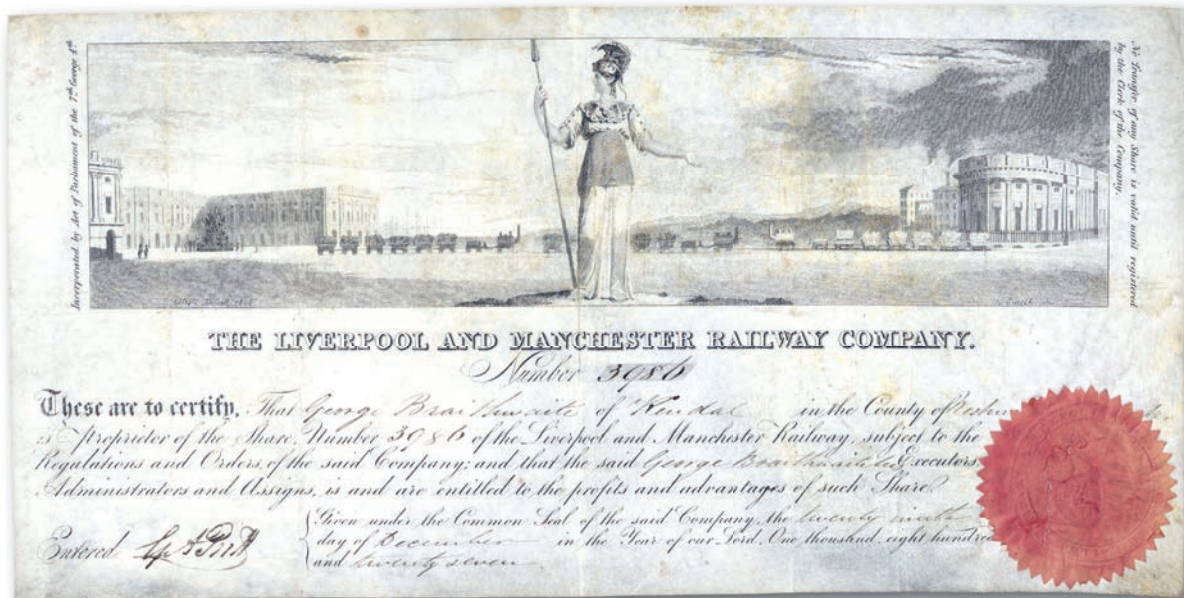 Incorporated by Act of Parliament of the 7th George 4th.
No Transfer of any Share is valid until registered
by the Clerk of the Company.
THE LIVERPOOL AND MANCHESTER RAILWAY COMPANY.
Number 3986
These are to certify, That George Braithwaite of Kendal in the County of
is Proprietor of the Share, Number 3986 of the Liverpool and Manchester Railway, subject to the
Regulations and Orders of the said Company; and that the said George Braithwaite his Executors,
Administrators and Assigns, is and are entitled to the profits and advantages of such Share.
Given under the Common Seal of the said Company, the twenty ninth
Entered day of December in the Year of our Lord, One thousand, eight hundred
and twenty seven